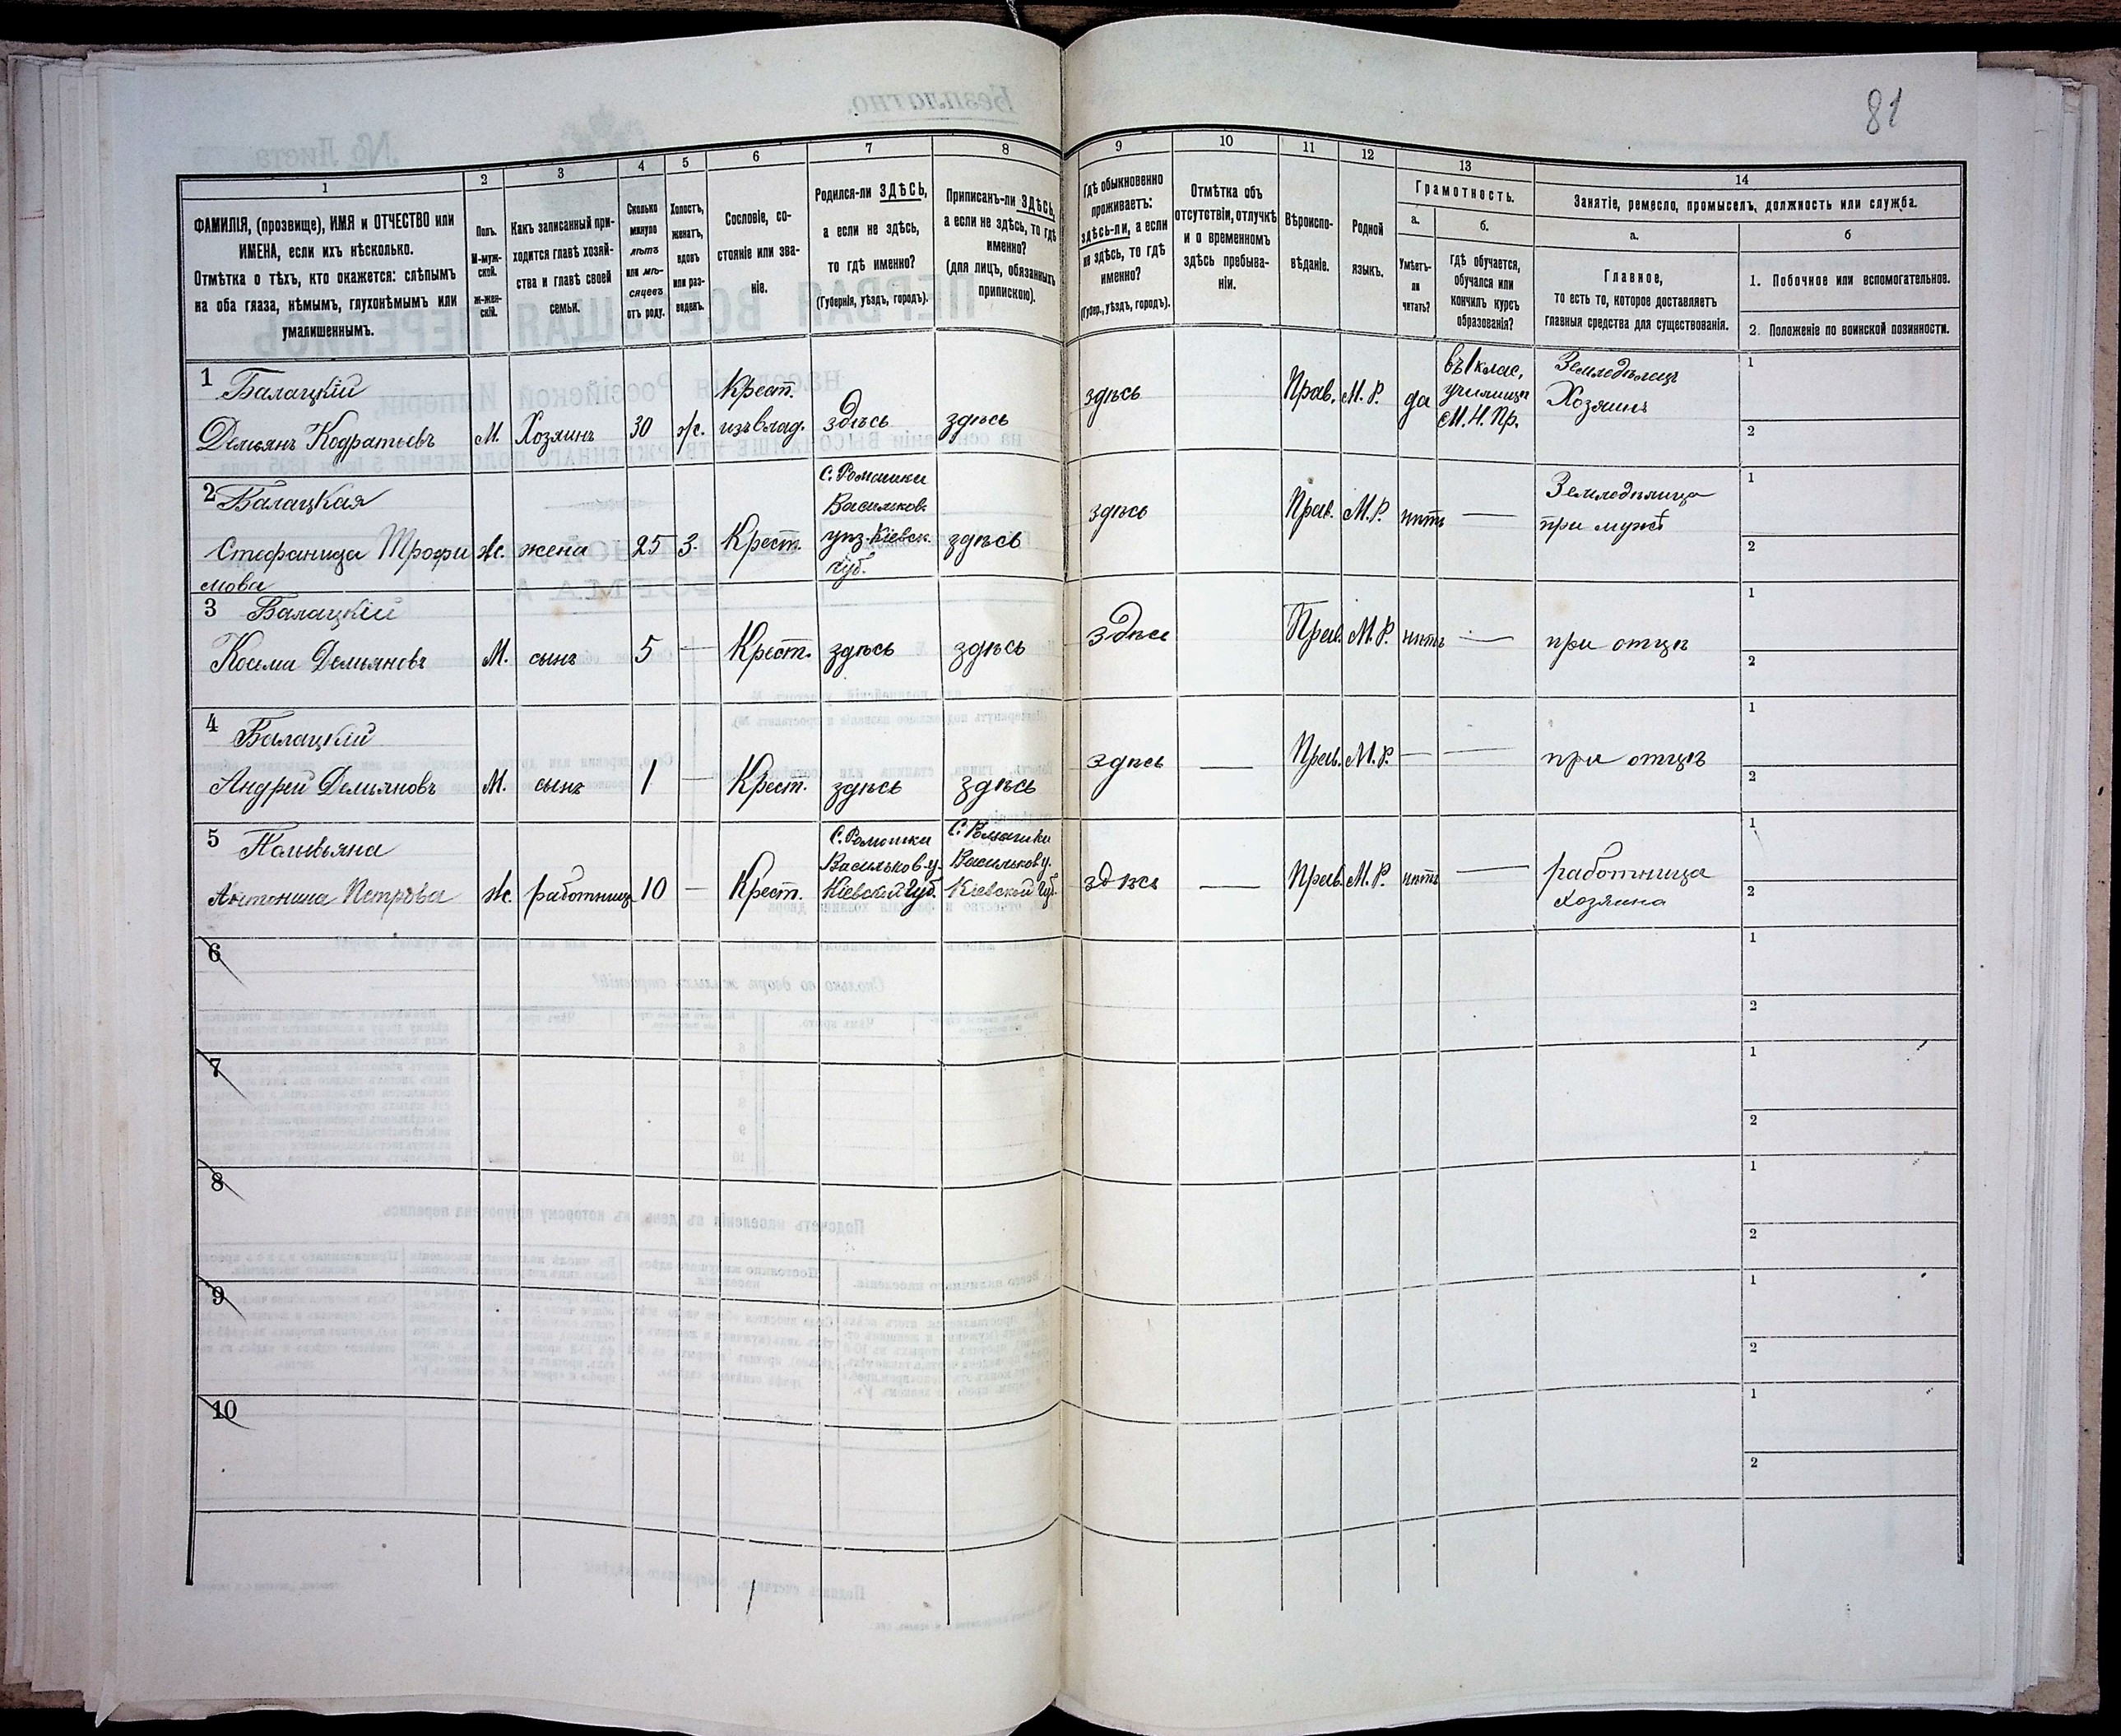 81
1
ФАМИЛІЯ, (прозвище), ИМЯ и ОТЧЕСТВО или
ИМЕНА, если ихъ нѣсколько.
Отмѣтка о тѣхъ, кто окажется: слѣпымъ
на оба глаза, нѣмымъ, глухонѣмымъ или
умалишеннымъ.
2
Полъ.
М-муж-
ской.
ж-жен-
скій.
3
Какъ записанный при-
ходится главѣ хозяй-
ства и главѣ своей
семьи.
4
Сколько
минуло
лѣтъ
или мѣ-
сяцевъ
отъ роду.
5
Холостъ,
женатъ,
вдовъ
или раз-
веденъ.
6
Сословіе, со-
стояніе или зва-
ніе.
7
Родился-ли ЗДѢСЬ,
а если не здѣсь,
то гдѣ именно?
(Губернія, уѣздъ, городъ).
8
Приписанъ-ли ЗДѢСЬ,
а если не здѣсь, то гдѣ
именно?
(для лицъ, обязанныхъ
припискою).
9
Гдѣ обыкновенно
проживаетъ:
здѣсь-ли, а если
не здѣсь, то гдѣ
именно?
(Губер., уѣздъ, городъ).
10
Отмѣтка объ
отсутствіи, отлучкѣ
и о временномъ
здѣсь пребыва-
ніи.
11
Вѣроиспо-
вѣданіе.
12
Родной
языкъ.
13
Грамотность.
а.
Умѣетъ-
ли
читать?
б.
Гдѣ обучается,
обучался или
кончилъ курсъ
образованія?
14
Занятіе, ремесло, промыселъ, должность или служба.
а.
Главное,
то есть то, которое доставляетъ
главныя средства для существованія.
б
1. Побочное или вспомогательное.
2. Положеніе по воинской повинности.
1 Балацкій
Демьянъ Кодратьевъ
М.
Хозяинъ
30
ж.
Крест.
изъ влад.
здѣсь
здѣсь
здѣсь
Прав.
М. Р.
да
въ 1 клас.
училищѣ
М. Н. Пр.
Земледѣлецъ
Хозяинъ
1
2
2 Балацкая
Стефанида Трофи
мова
Ж.
жена
25
З.
Крест.
С. Ромашки
Васильков.
уѣз. Кіевск.
Губ.
здѣсь
здѣсь
Прав.
М. Р.
нѣтъ —
Земледѣлица
при мужѣ
1
2
3 Балацкій
Косма Демьяновъ
М.
сынъ
5
—
Крест.
здѣсь
здѣсь
здѣсь
Прав.
М. Р.
нѣтъ —
при отцѣ
1
2
4 Балацкій
Андрей Демьяновъ
М.
сынъ
1
—
Крест.
здѣсь
здѣсь
здѣсь
—
Прав.
М. Р.
— —
при отцѣ
1
2
5
Антонина Петрова
Ж.
работница
10
—
Крест.
С. Ромашки
Васильков. у.
Кіевской Губ.
С. Ромашки
Васильков у.
Кіевской Губ.
здѣсь
—
Прав.
М. Р.
нѣтъ —
работница
хозяина
1
2
6
1
2
7
1
2
8
1
2
9
1
2
10
1
2